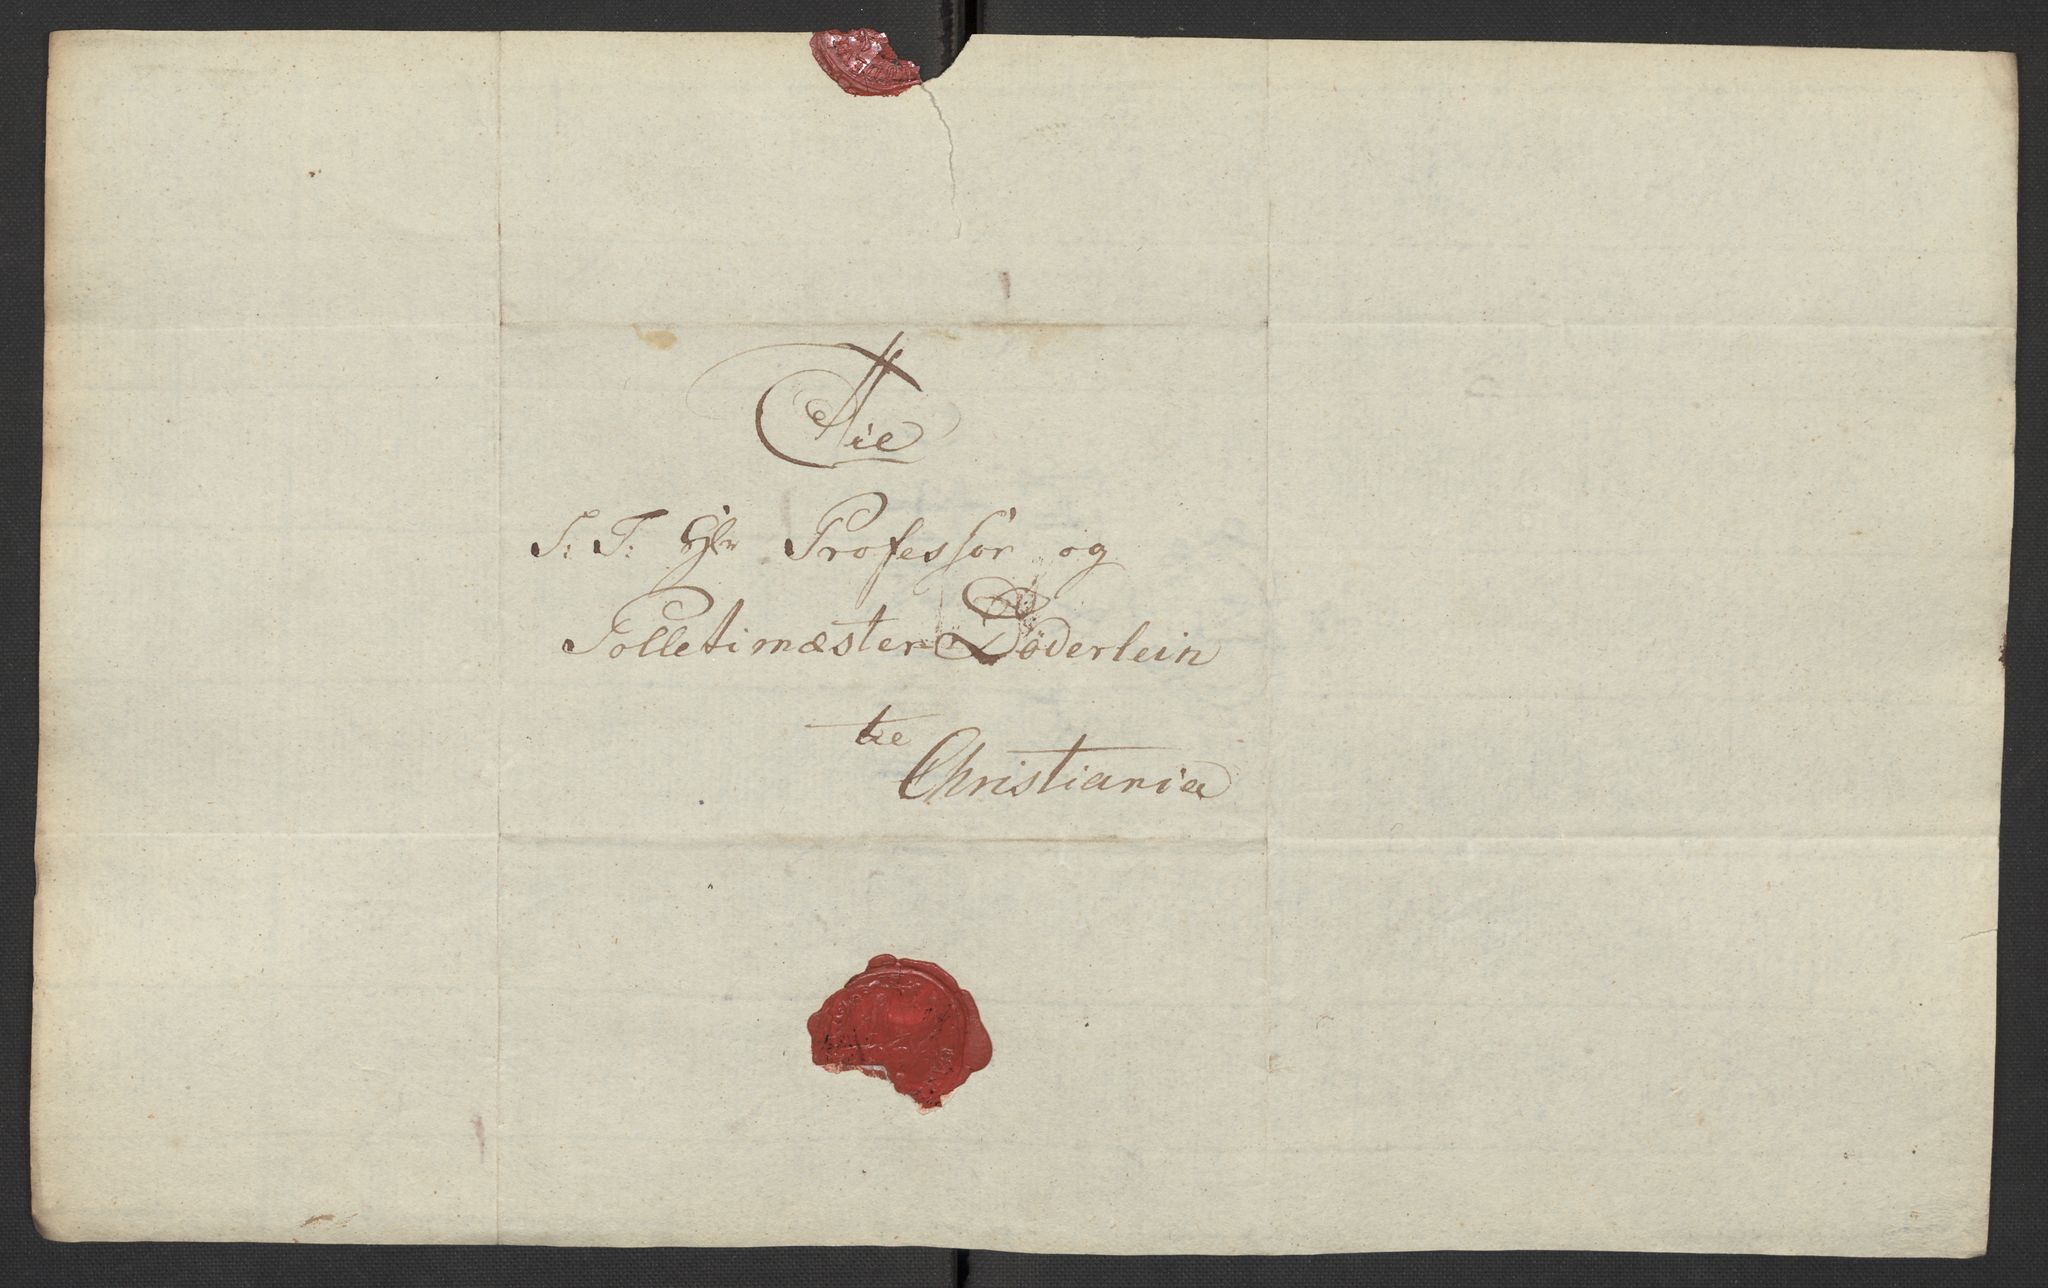 Til
S: T: Hr Professor og
Polletimæster Döderlein
til
Christiania